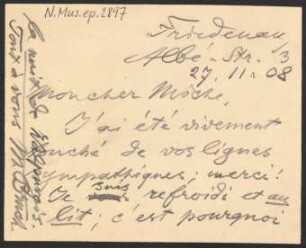 N. Mus. ep. 2897
Friedenau
Albe-Str. 3
27. 11. 08
Mon cher Moche,
J'ai été vivement
touché de vos lignes
sympathiques; merci!
Je suis refroidi et au
lit; c'est pourquoi
la nuit de
Tout à vous M. Bruch